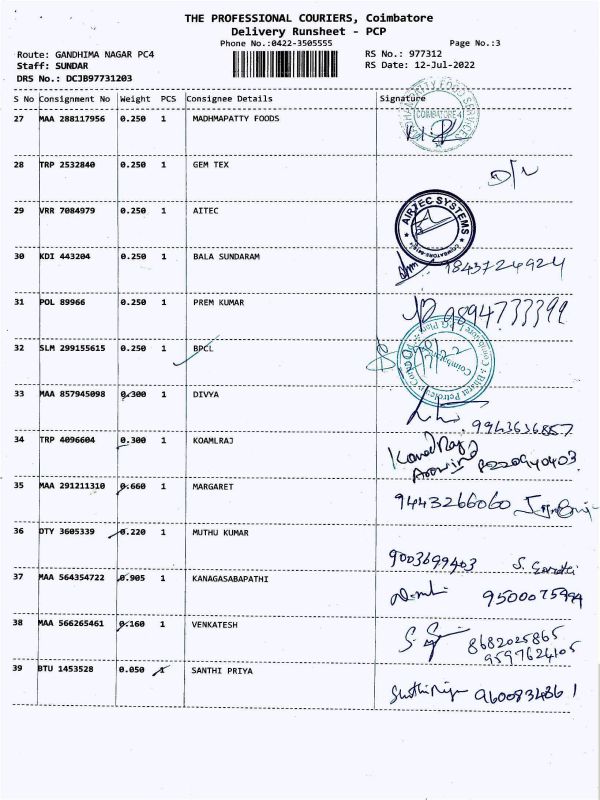 THE PROFESSIONAL COURIERS, Coimbatore
Delivery Runsheet - PCP
Phone No.:0422-3505555 Page No.:3
Route: GANDHIMA NAGAR PC4 RS No.: 977312
Staff: SUNDAR RS Date: 12-Jul-2022
DRS No.: DCJB97731203
S No Consignment No Weight PCS Consignee Details Signature
27 MAA 288117956 0.250 1 MADHMAPATTY FOODS
COIMBATORE-4
28 TRP 2532840 0.250 1 GEM TEX
29 VRR 7084979 0.250 1 AITEC
AIRTEC SYSTEMS
30 KDI 443204 0.250 1 BALA SUNDARAM 9843724924
31 POL 89966 0.250 1 PREM KUMAR 9894733399
32 SLM 299155615 0.250 1 BPCL
33 MAA 857945098 0.300 1 DIVYA 9943636857
34 TRP 4096604 0.300 1 KOAMLRAJ
35 MAA 291211310 0.660 1 MARGARET 9443266060
36 DTY 3605339 0.220 1 MUTHU KUMAR 9003699403
37 MAA 564354722 0.905 1 KANAGASABAPATHI 9500075994
38 MAA 566265461 0.160 1 VENKATESH 8682025865
9597624105
39 BTU 1453528 0.050 1 SANTHI PRIYA 9600834861